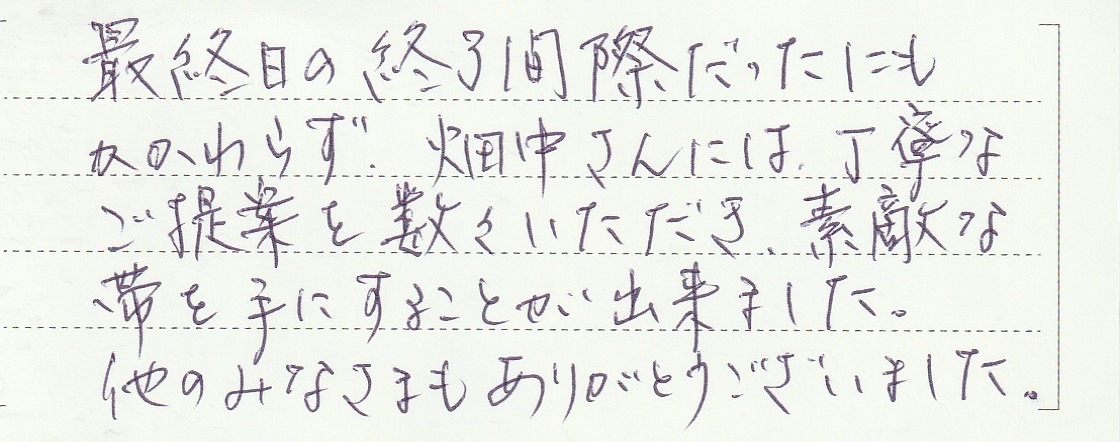 最終日の終了間際だったにも
かかわらず、畑中さんには、丁寧な
ご提業を数々いただき、素敵な
帯を手にすることが出来ました。
他のみなさまもありがとうございました。